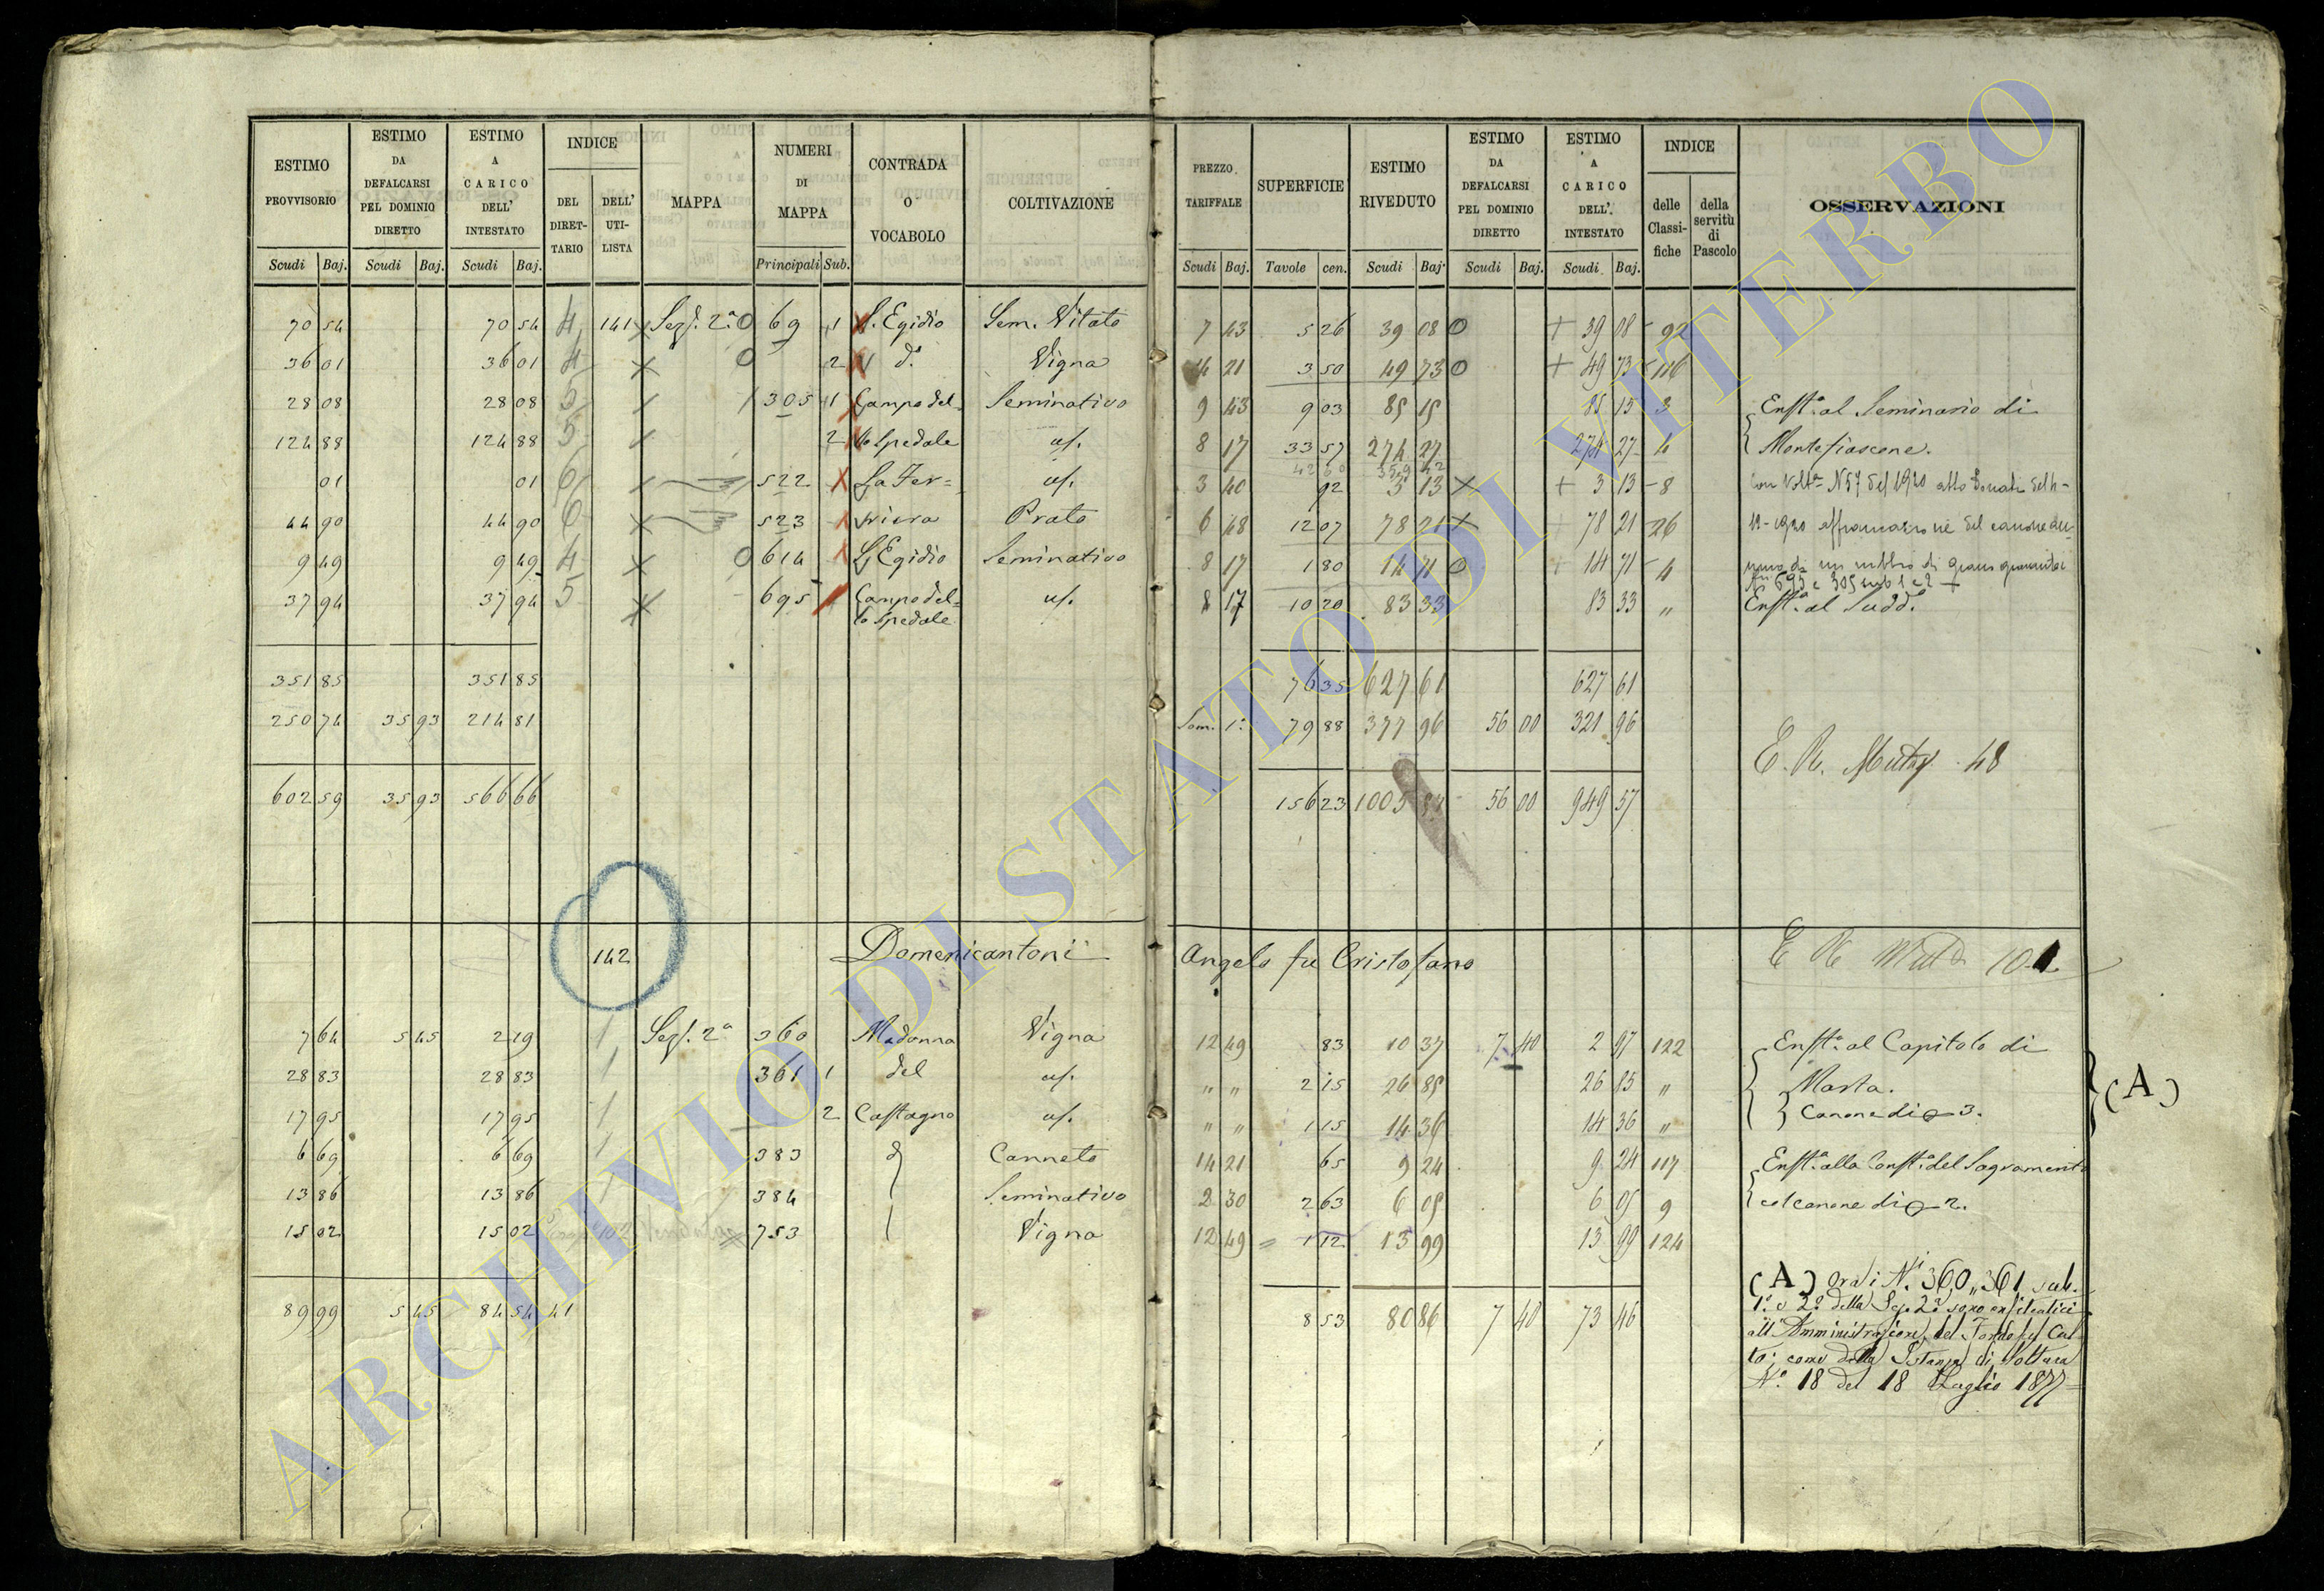 ESTIMO PROVVISORIO | ESTIMO DA DEFALCARSI PEL DOMINIO DIRETTO | ESTIMO A CARICO DELL' INTESTATO | INDICE DEL DIRET-TARIO | DELL' UTI-LISTA | MAPPA | NUMERI DI MAPPA | CONTRADA O VOCABOLO | COLTIVAZIONE | PREZZO TARIFFALE | SUPERFICIE | ESTIMO RIVEDUTO | ESTIMO DA DEFALCARSI PEL DOMINIO DIRETTO | ESTIMO A CARICO DELL' INTESTATO | INDICE delle Classi-fiche | della servitù di Pascolo | OSSERVAZIONI
Scudi Baj. | Scudi Baj. | Scudi Baj. | Principali Sub. | Scudi Baj. | Tavole cen. | Scudi Baj. | Scudi Baj. | Scudi Baj.
70 54 | 70 54 | 4 | 141 | Sez. 2ª | 0 69 1 | S. Egidio | Sem. Vitato | 7 43 | 5 26 | 39 08 0 | + 39 08
36 01 | 36 01 | 4 | 0 | 2 | dº | Vigna | 21 | 3 50 | 49 73 0 | + 49 73 | 116
28 08 | 28 08 | 5 | 305 1 | Campo del= | Seminativo | 9 43 | 9 03 | 85 15 | 85 15 | 3 | Enfta. al Seminario di
124 88 | 124 88 | 5 | 2 | lo Spedale | us. | 8 17 | 33 57 | 274 27 | 274 27 | 4 | Montefiascone.
42 60 | 359 42
01 | 01 | 6 | 522 | La Fer= | us. | 3 40 | 92 | 3 13 X | + 3 13 | 8 | Con Volta N 57 del 1920 atto Donati
44 90 | 44 90 | 6 | 523 | riera | Prato | 6 48 | 12 07 | 78 21 X | 78 21 | 26 | 1920 affrancazione del canone an-
9 49 | 9 49 | 4 | 0 614 | S. Egidio | Seminativo | 8 17 | 1 80 | 14 71 0 | 14 71 | 4 | nuo di un rubbio di grano
695 e 305 sub 1 e 2
37 94 | 37 94 | 5 | 695 | Campo del= | us. | 8 17 | 10 20 | 83 33 | 83 33 | " | Enfta. al Sudd.º
lo Spedale
351 85 | 351 85 | 76 35 | 627 61 | 627 61
250 74 | 35 93 | 214 81 | Som. 1ª | 79 88 | 377 96 | 56 00 | 321 96
E. R. 48
602 59 | 35 93 | 566 66 | 156 23 | 1005 | 56 00 | 949 57
142 | Domenicantoni Angelo fu Cristofano | E R 10
7 64 | 5 45 | 2 19 | 1 | Sez. 2ª | 360 | Madonna | Vigna | 12 49 | 83 | 10 37 | 7 40 | 2 97 | 122 | Enfta. al Capitolo di
28 83 | 28 83 | 1 | 361 1 | del | us. | " " | 2 15 | 26 85 | 26 85 | " | Marta. (A)
17 95 | 17 95 | 1 | 2 | Castagno | us. | " " | 1 15 | 14 36 | 14 36 | " | Canone di 3.
6 69 | 6 69 | 1 | 383 | d | Canneto | 14 21 | 65 | 9 24 | 9 24 | 117 | Enfta. alla Confta. del Sagramento
13 86 | 13 86 | 1 | 384 | Seminativo | 2 30 | 2 63 | 6 05 | 6 05 | 9 | col canone di 2.
15 02 | 15 02 | 753 | Vigna | 12 49 | 1 12 | 13 99 | 13 99 | 124
89 99 | 5 45 | 84 54 | 41 | 8 53 | 80 86 | 7 40 | 73 46
(A) Ora i Ni. 360, 361 sub.
1º e 2º della Sez. 2ª sono enfiteutici
all'Amministrazione del Fondo pel Cul-
to, come dalla Istanza di Voltura
Nº. 18 del 18 Luglio 1877
ARCHIVIO DI STATO DI VITERBO